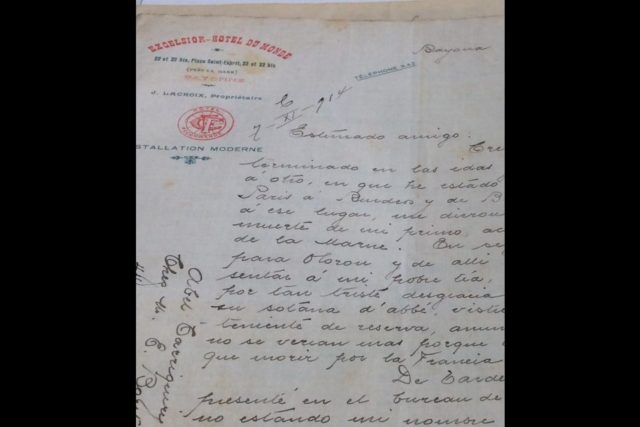 EXCELSIOR-HOTEL DU MONDE
22 et 22 bis, Place Saint-Esprit, 22 et 22 bis
(PRÈS LA GARE)
BAYONNE
J. LACROIX, Propriétaire
HOTEL
INSTALLATION MODERNE
TÉLÉPHONE
Bayona
XI-914
Estimado amigo:
Cre
terminado en las idas
á otro, en que he estado
Paris á Burdeos y de B
á ese lugar, me dieron
muerte de mi primo, ac
de la Marne. En se
para Oloron y de alli
sentar á mi pobre tía,
por tan triste desgracia
su sotana d'abbé, visti
teniente de reserva, anun
no se verian mas porque
que morir por la Francia
De Tarde
presenté en el bureau de
no estando mi nombre
Abel